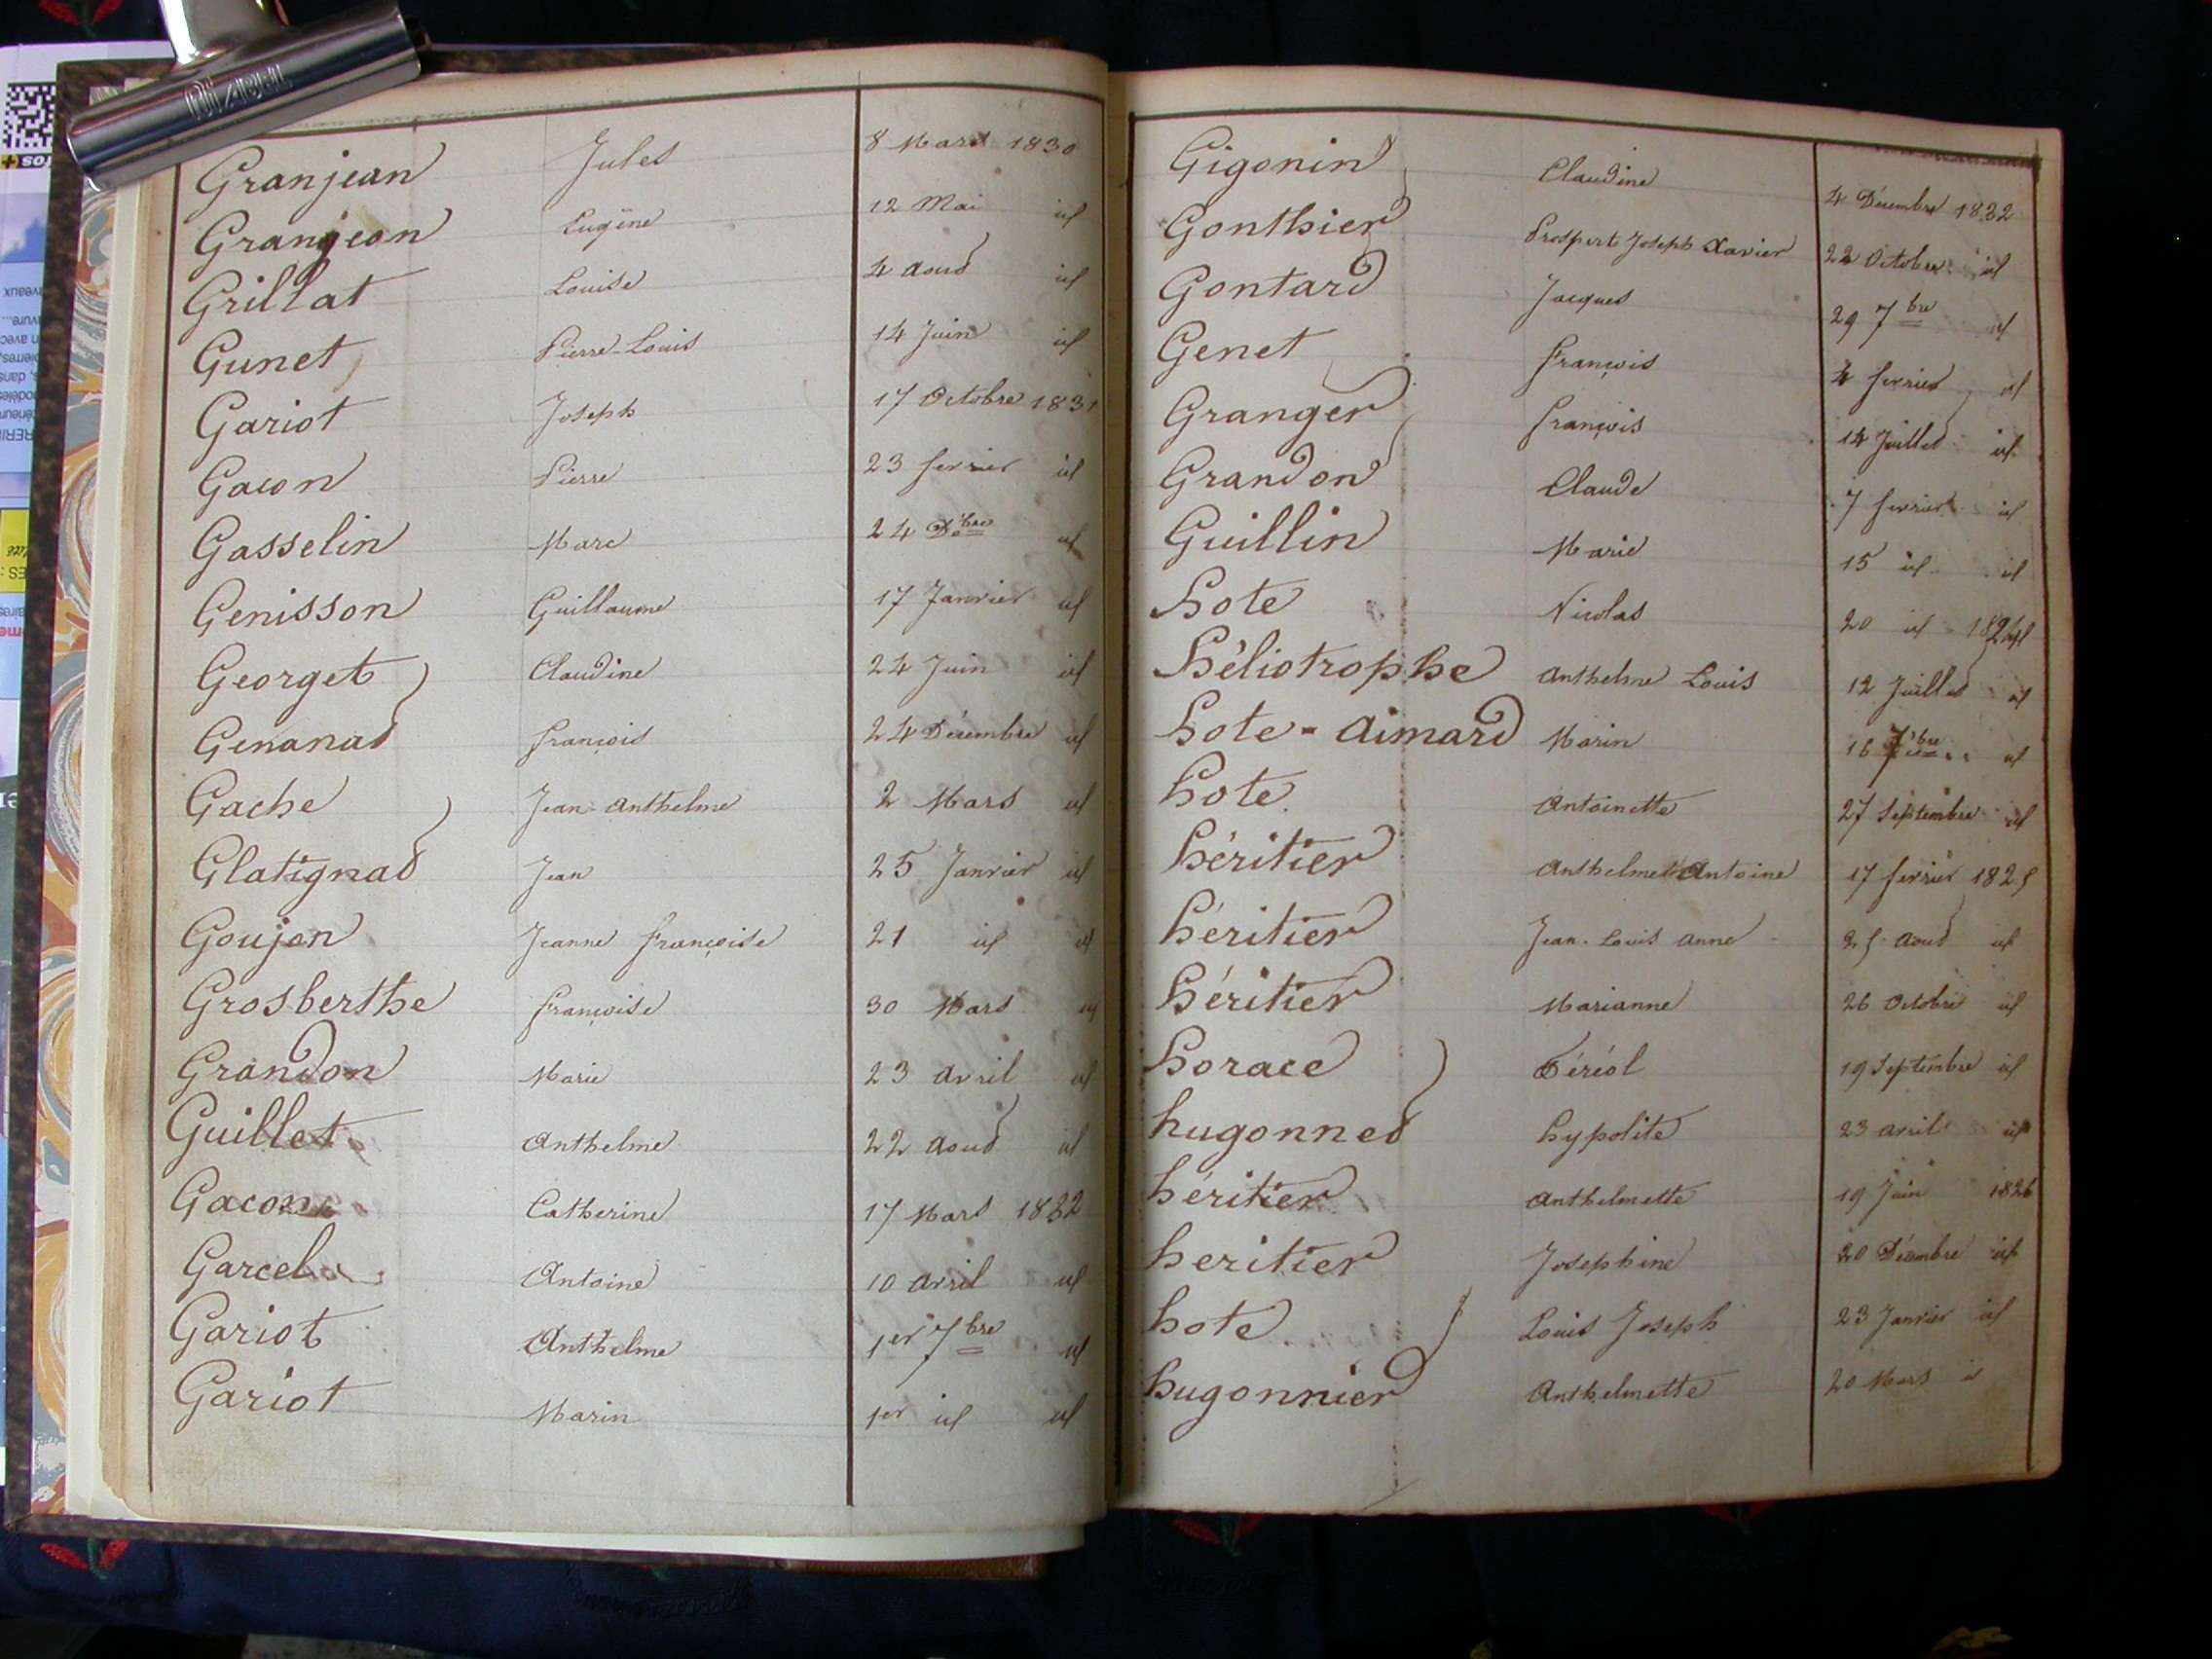 Granjean Jules 8 Mars 1830
Granjeon Eugène 12 Mai id
Grillat Louise 4 aoud id
Gunet Pierre-Louis 14 Juin id
Gariot Joseph 17 Octobre 1831
Gacon Pierre 23 fevrier id
Gasselin Marc 24 Dbre id
Genisson Guillaume 17 Janvier id
Georget Claudine 24 Juin id
Genanad françois 24 Décembre id
Gache Jean-anthelme 2 Mars id
Glatignad Jean 25 Janvier id
Goujon Jeanne françoise 21 id id
Grosberthe françoise 30 Mars id
Grandon Marie 23 avril id
Guillet anthelme 22 aoud id
Gacon Catherine 17 Mars 1832
Garcel Antoine 10 avril id
Gariot Anthelme 1er 7bre id
Gariot Marin 1er id id
Gigonin Claudine 4 Décembre 1832
Gonthier Prospert Joseph Xavier 22 Octobre id
Gontard Jacques 29 7bre id
Genet françois 4 fevrier id
Granger françois 14 Juilled id
Grandon Claude 7 fevrier id
Guillin Marie 15 id id
hote Nicolas 20 id 1824
héliotrophe anthelme Louis 12 Juilled id
hote-aimard Marin 16 7bre id
hote antoinette 27 Septembre id
héritier anthelme antoine 17 fevrier 1825
héritier Jean-Louis anne 25 aoud id
héritier Marianne 26 octobre id
horace féréol 19 Septembre id
hugonned hypolite 23 avril id
héritier anthelmette 19 Juin 1826
heritier Josephine 20 Décembre id
hote Louis Joseph 23 Janvier id
hugonnier anthelmette 20 Mars id